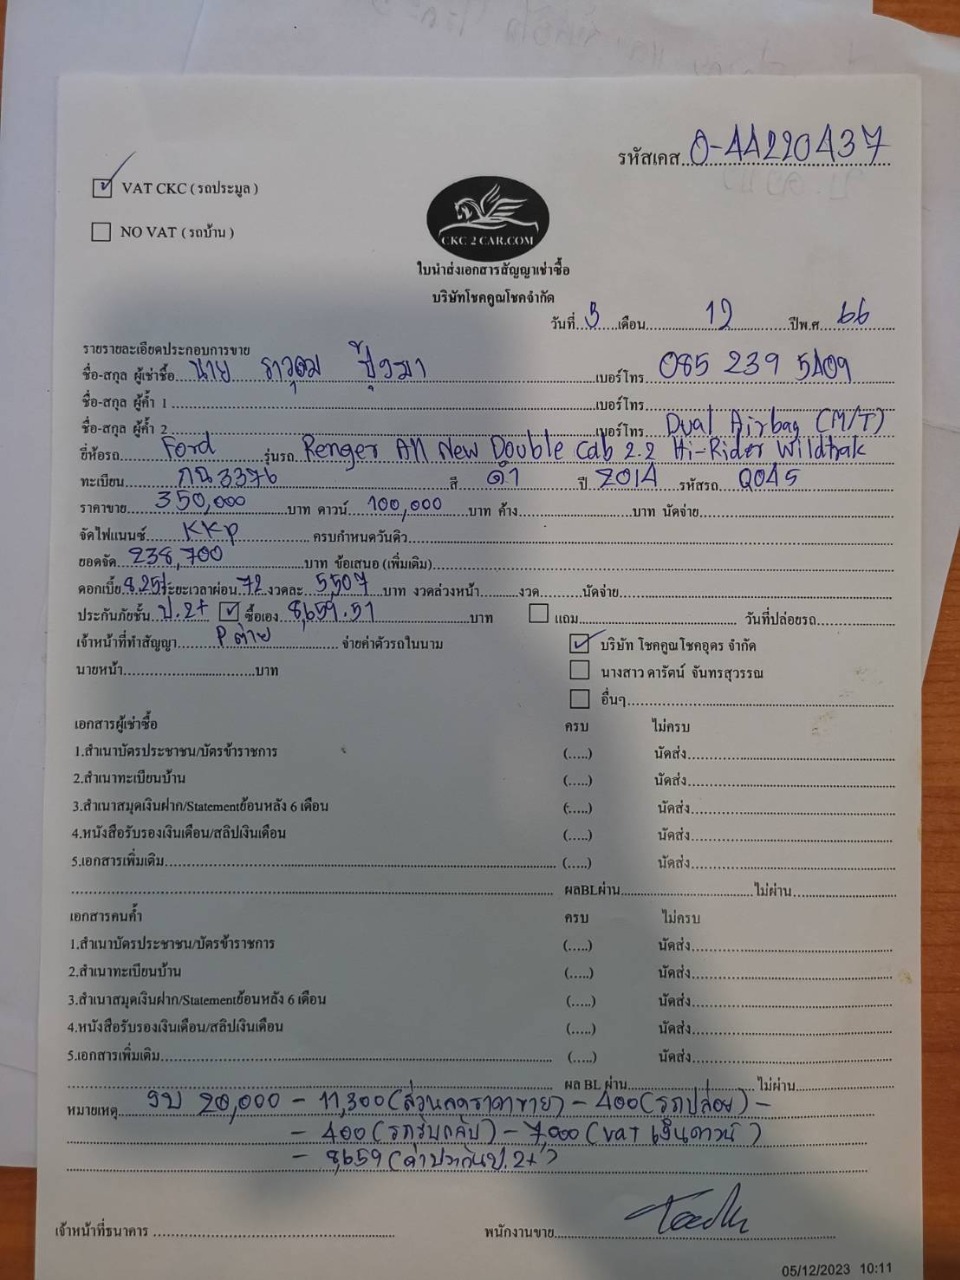 รหัสเคส 0-44220437
VAT CKC ( รถประมูล )
NO VAT ( รถบ้าน )
CKC 2 CAR.COM
ใบนำส่งเอกสารสัญญาเช่าซื้อ
บริษัทโชคคูณโชคจำกัด
วันที่ 5 เดือน 12 ปีพ.ศ. 66
รายรายละเอียดประกอบการขาย
ชื่อ-สกุล ผู้เช่าซื้อ นาย เบอร์โทร 085 239 5409
ชื่อ-สกุล ผู้ค้ำ 1 เบอร์โทร
ชื่อ-สกุล ผู้ค้ำ 2 เบอร์โทร Dual Airbag (M/T)
ยี่ห้อรถ Ford รุ่นรถ Renger All New Double Cab 2.2 Hi-Rider Wildtrak
ทะเบียน กฉ 3376 สี ดำ ปี 2014 รหัสรถ Q045
ราคาขาย 350,000 บาท ดาวน์ 100,000 บาท ค้าง บาท นัดจ่าย
จัดไฟแนนซ์ KKP ครบกำหนดวันดิว
ยอดจัด 238,700 บาท ข้อเสนอ (เพิ่มเติม)
ดอกเบี้ย 8.25% ระยะเวลาผ่อน 72 งวดละ 5507 บาท งวดล่วงหน้า งวด นัดจ่าย
ประกันภัยชั้น ป.2+ ซื้อเอง 8,659.51 บาท แถม วันที่ปล่อยรถ
เจ้าหน้าที่ทำสัญญา P ต่าย จ่ายค่าตัวรถในนาม บริษัท โชคคูณโชคอุดร จำกัด
นายหน้า บาท นางสาว ดารัตน์ จันทรสุวรรณ
อื่นๆ
เอกสารผู้เช่าซื้อ ครบ ไม่ครบ
1.สำเนาบัตรประชาชน/บัตรข้าราชการ (.....) นัดส่ง
2.สำเนาทะเบียนบ้าน (.....) นัดส่ง
3.สำเนาสมุดเงินฝาก/Statementย้อนหลัง 6 เดือน (.....) นัดส่ง
4.หนังสือรับรองเงินเดือน/สลิปเงินเดือน (.....) นัดส่ง
5.เอกสารเพิ่มเติม (.....) นัดส่ง
ผลBLผ่าน ไม่ผ่าน
เอกสารคนค้ำ ครบ ไม่ครบ
1.สำเนาบัตรประชาชน/บัตรข้าราชการ (.....) นัดส่ง
2.สำเนาทะเบียนบ้าน (.....) นัดส่ง
3.สำเนาสมุดเงินฝาก/Statementย้อนหลัง 6 เดือน (.....) นัดส่ง
4.หนังสือรับรองเงินเดือน/สลิปเงินเดือน (.....) นัดส่ง
5.เอกสารเพิ่มเติม (.....) นัดส่ง
ผล BL ผ่าน ไม่ผ่าน
หมายเหตุ งบ 20,000 - 11,300 (ส่วนลดราคาขาย) - 400 (รถปล่อย) -
- 400 (รถรับกลับ) - 7,000 (vat เงินดาวน์)
- 8,659 (ค่าประกันป.2+)
เจ้าหน้าที่ธนาคาร พนักงานขาย
05/12/2023 10:11